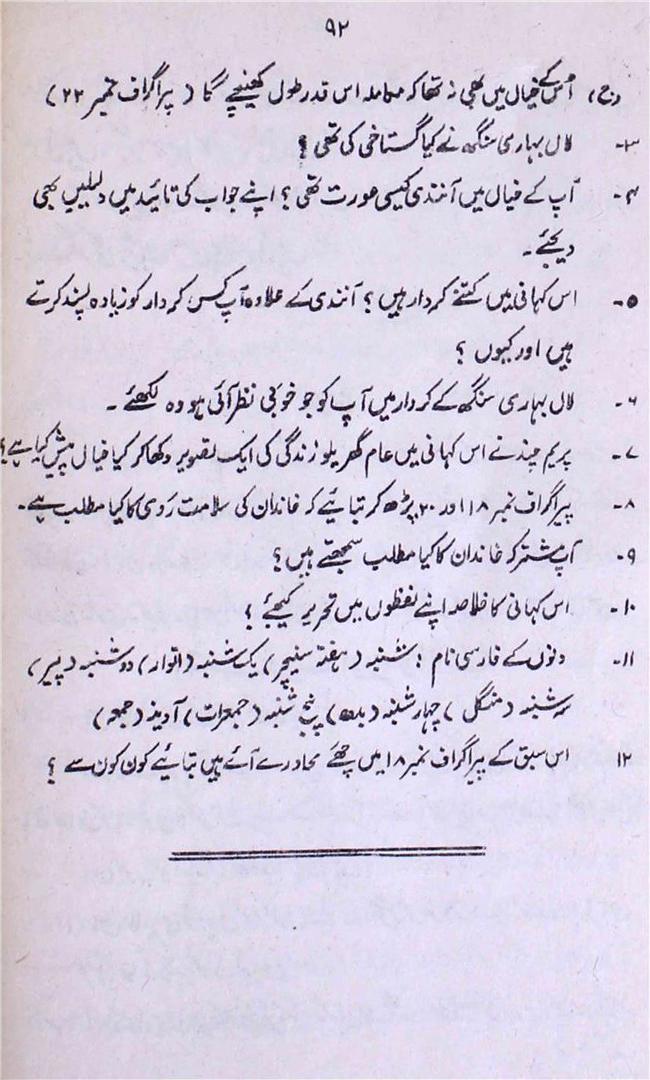 ۹۲
(ج) اُس کے خیال میں بھی نہ تھا کہ معاملہ اس قدر طول کھینچے گا ( پیراگراف نمبر ۲۲)
۳۔ لال بہاری سنگھ نے کیا گستاخی کی تھی ؟
۴۔ آپ کے خیال میں آنندی کیسی عورت تھی ؟ اپنے جواب کی تائید میں دلیلیں بھی
دیجئے۔
۵۔ اس کہانی میں کتنے کردار ہیں ؟ آنندی کے علاوہ آپ کس کردار کو زیادہ پسند کرتے
ہیں اور کیوں ؟
۶۔ لال بہاری سنگھ کے کردار میں آپ کو جو خوبی نظر آئی ہو وہ لکھئے ۔
۷۔ پریم چند نے اس کہانی میں عام گھریلو زندگی کی ایک تصویر دکھا کر کیا خیال پیش کیا ہے؟
۸۔ پیراگراف نمبر ۱۸ اور ۲۰ پڑھ کر بتائیے کہ خاندان کی سلامت رَوی کا کیا مطلب ہے۔
۹۔ آپ مشترکہ خاندان کا کیا مطلب سمجھتے ہیں؟
۱۰۔ اس کہانی کا خلاصہ اپنے لفظوں میں تحریر کیجئے ؟
۱۱۔ دنوں کے فارسی نام : شنبہ ( ہفتہ سنیچر) یک شنبہ (اتوار) دو شنبہ (پیر)
سہ شنبہ (منگل) چہار شنبہ (بدھ) پنج شنبہ (جمعرات) آدینہ (جمعہ)
۱۲ اس سبق کے پیراگراف نمبر ۱۸ میں چھے محاورے آئے ہیں بتائیے کون کون سے ؟